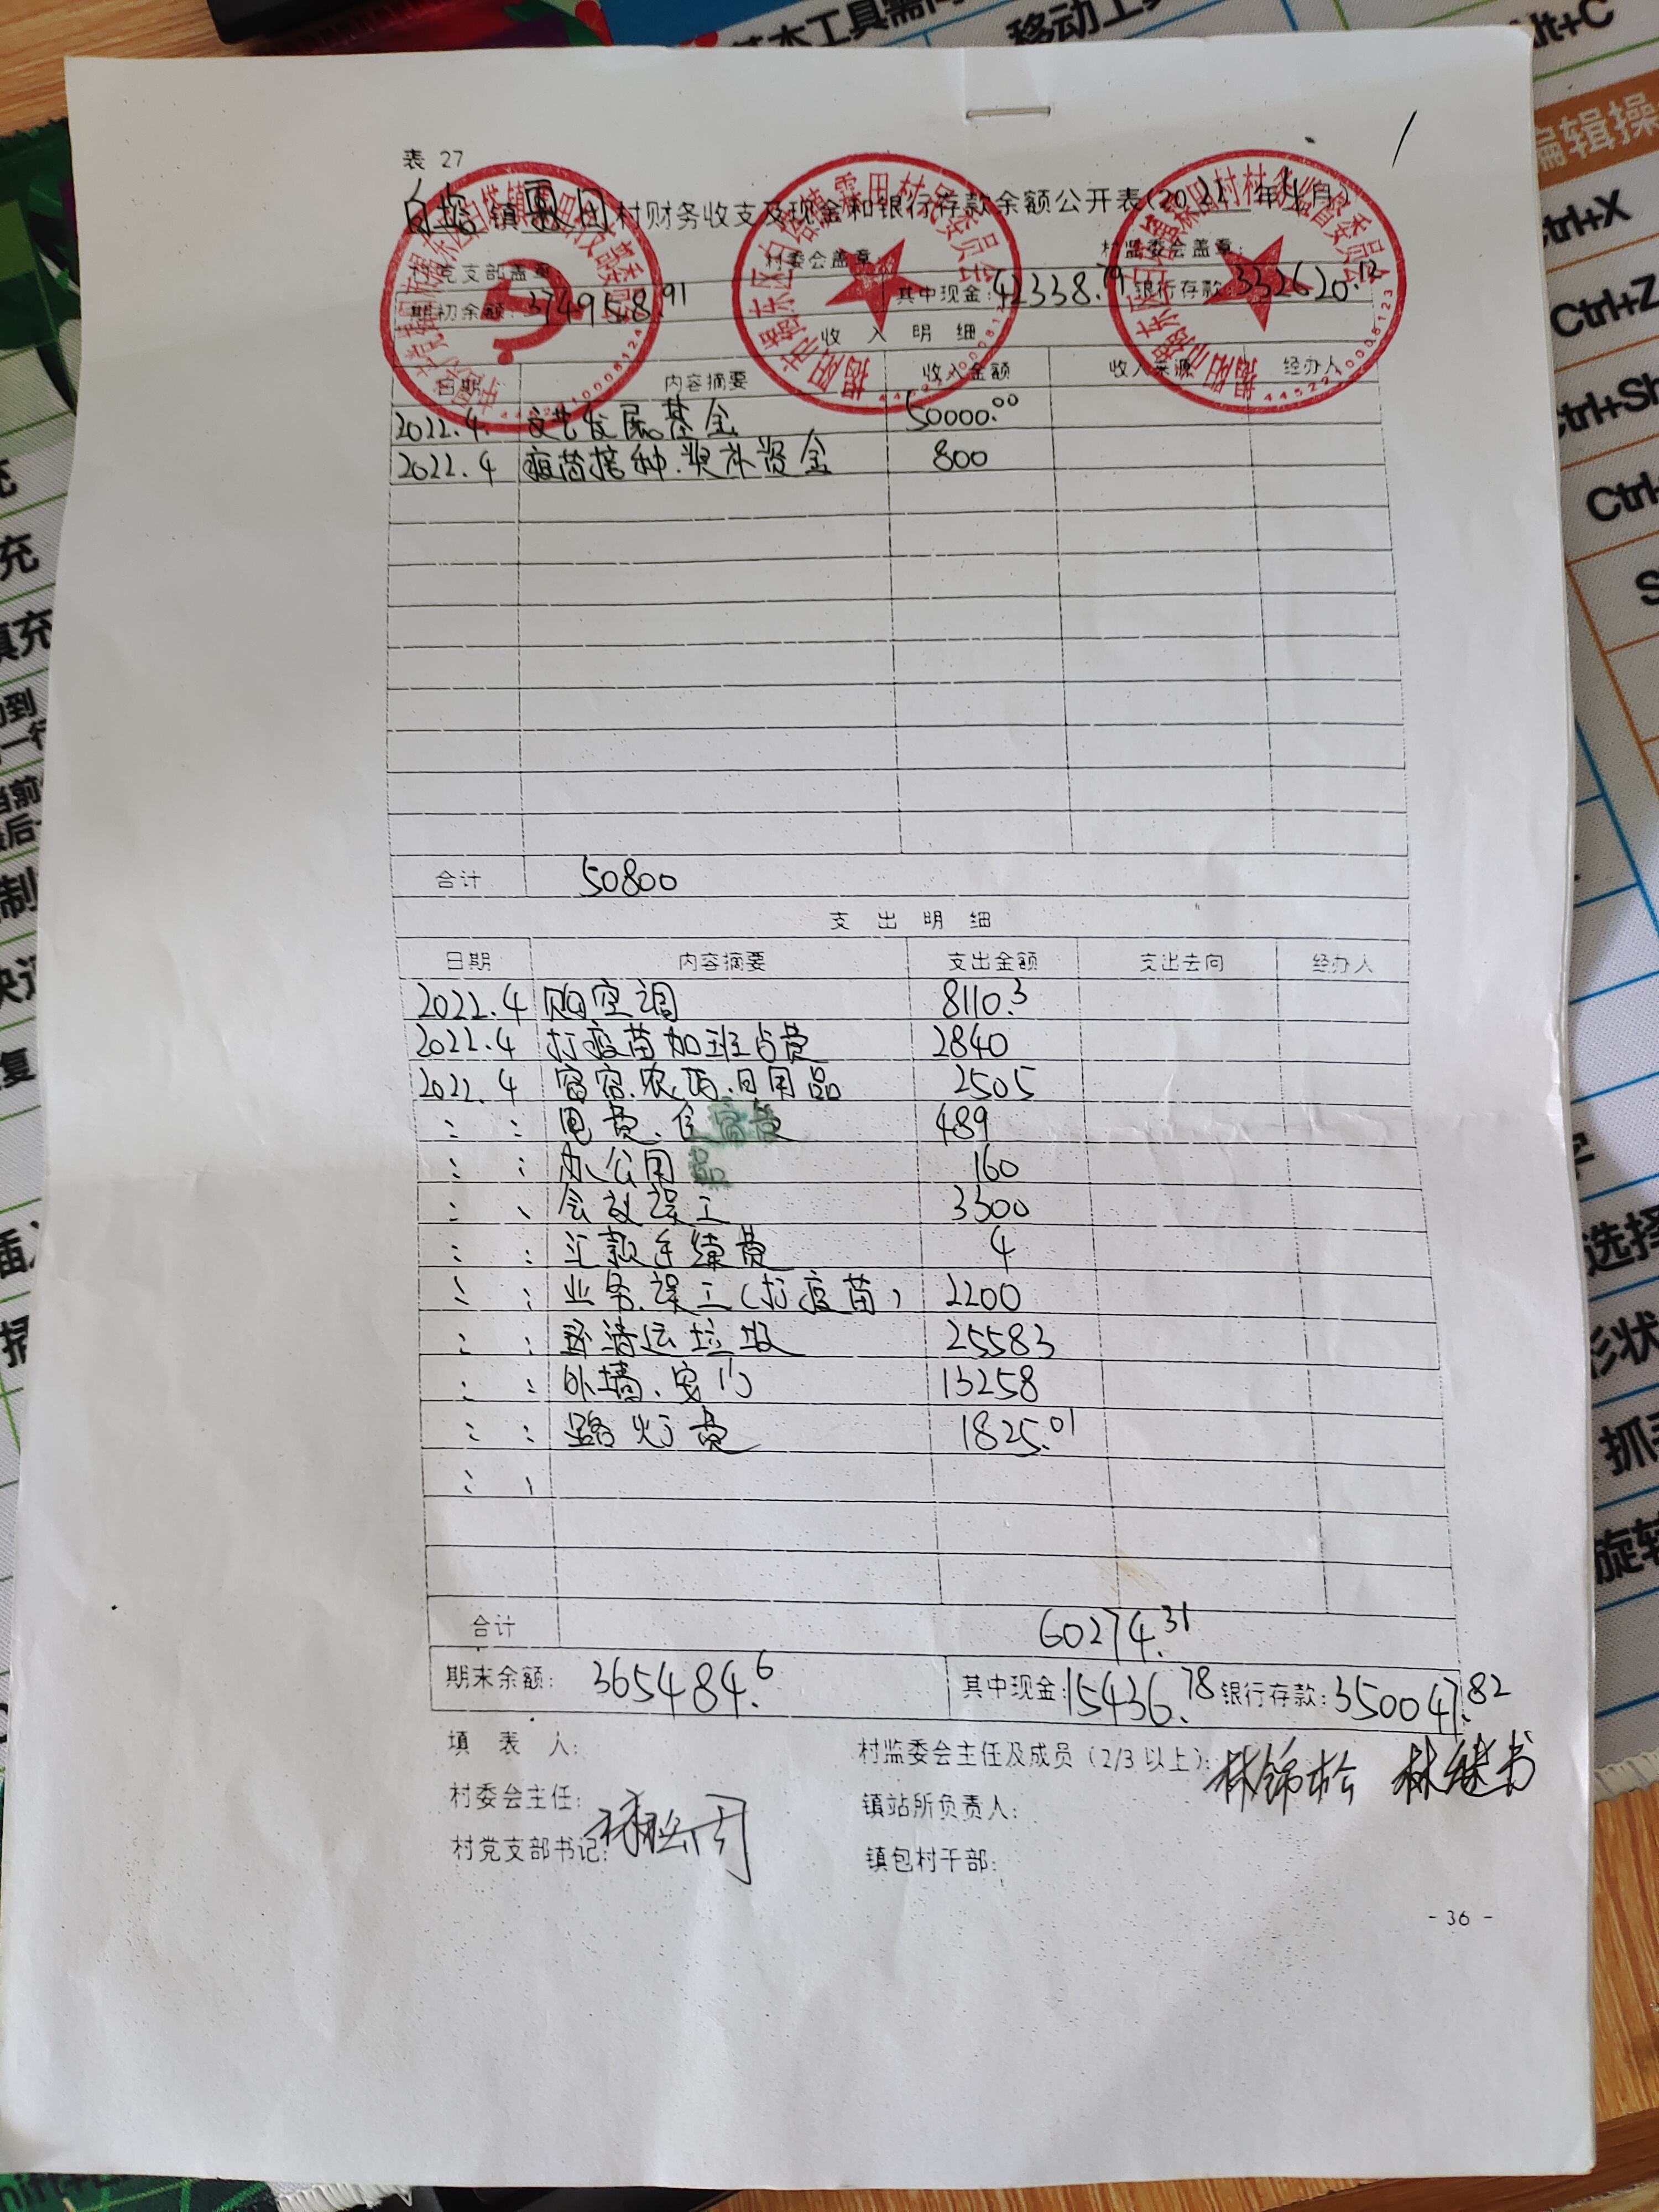 表 27
白塔镇霖田村财务收支及现金和银行存款余额公开表(2022年4月)
村党支部盖章: 村委会盖章: 村监委会盖章:
期初余额: 374958.91 其中现金: 42338.79 银行存款: 332620.12
收 入 明 细
日期 内容摘要 收入金额 收入来源 经办人
2022.4. 发展基金 50000.00
2022.4 疫苗接种.奖补资金 800
合计 50800
支 出 明 细
日期 内容摘要 支出金额 支出去向 经办人
2022.4 购空调 8110.3
2022.4 打疫苗加班占费 2840
2022.4 农药.日用品 2505
: : 电费、住宿费 489
: : 办公用品 160
: 、 会议误工 3300
: : 汇款手续费 4
: : 业务.误工(打疫苗) 2200
: : 清运垃圾 25583
: : 外墙、安门 13258
: : 路灯费 1825.01
合计 60274.31
期末余额: 365484.6 其中现金: 15436.78 银行存款: 350047.82
填 表 人: 村监委会主任及成员(2/3以上): 林锦松
村委会主任: 镇站所负责人:
村党支部书记: 镇包村干部:
- 36 -
充
充
填充
当前
制
快速
复
插入
基本工具需
移动工具
Alt+C
编辑操
Ctrl+X
Ctrl+Z
Ctrl+Sh
Ctrl+
选择
形状
抓手
旋转